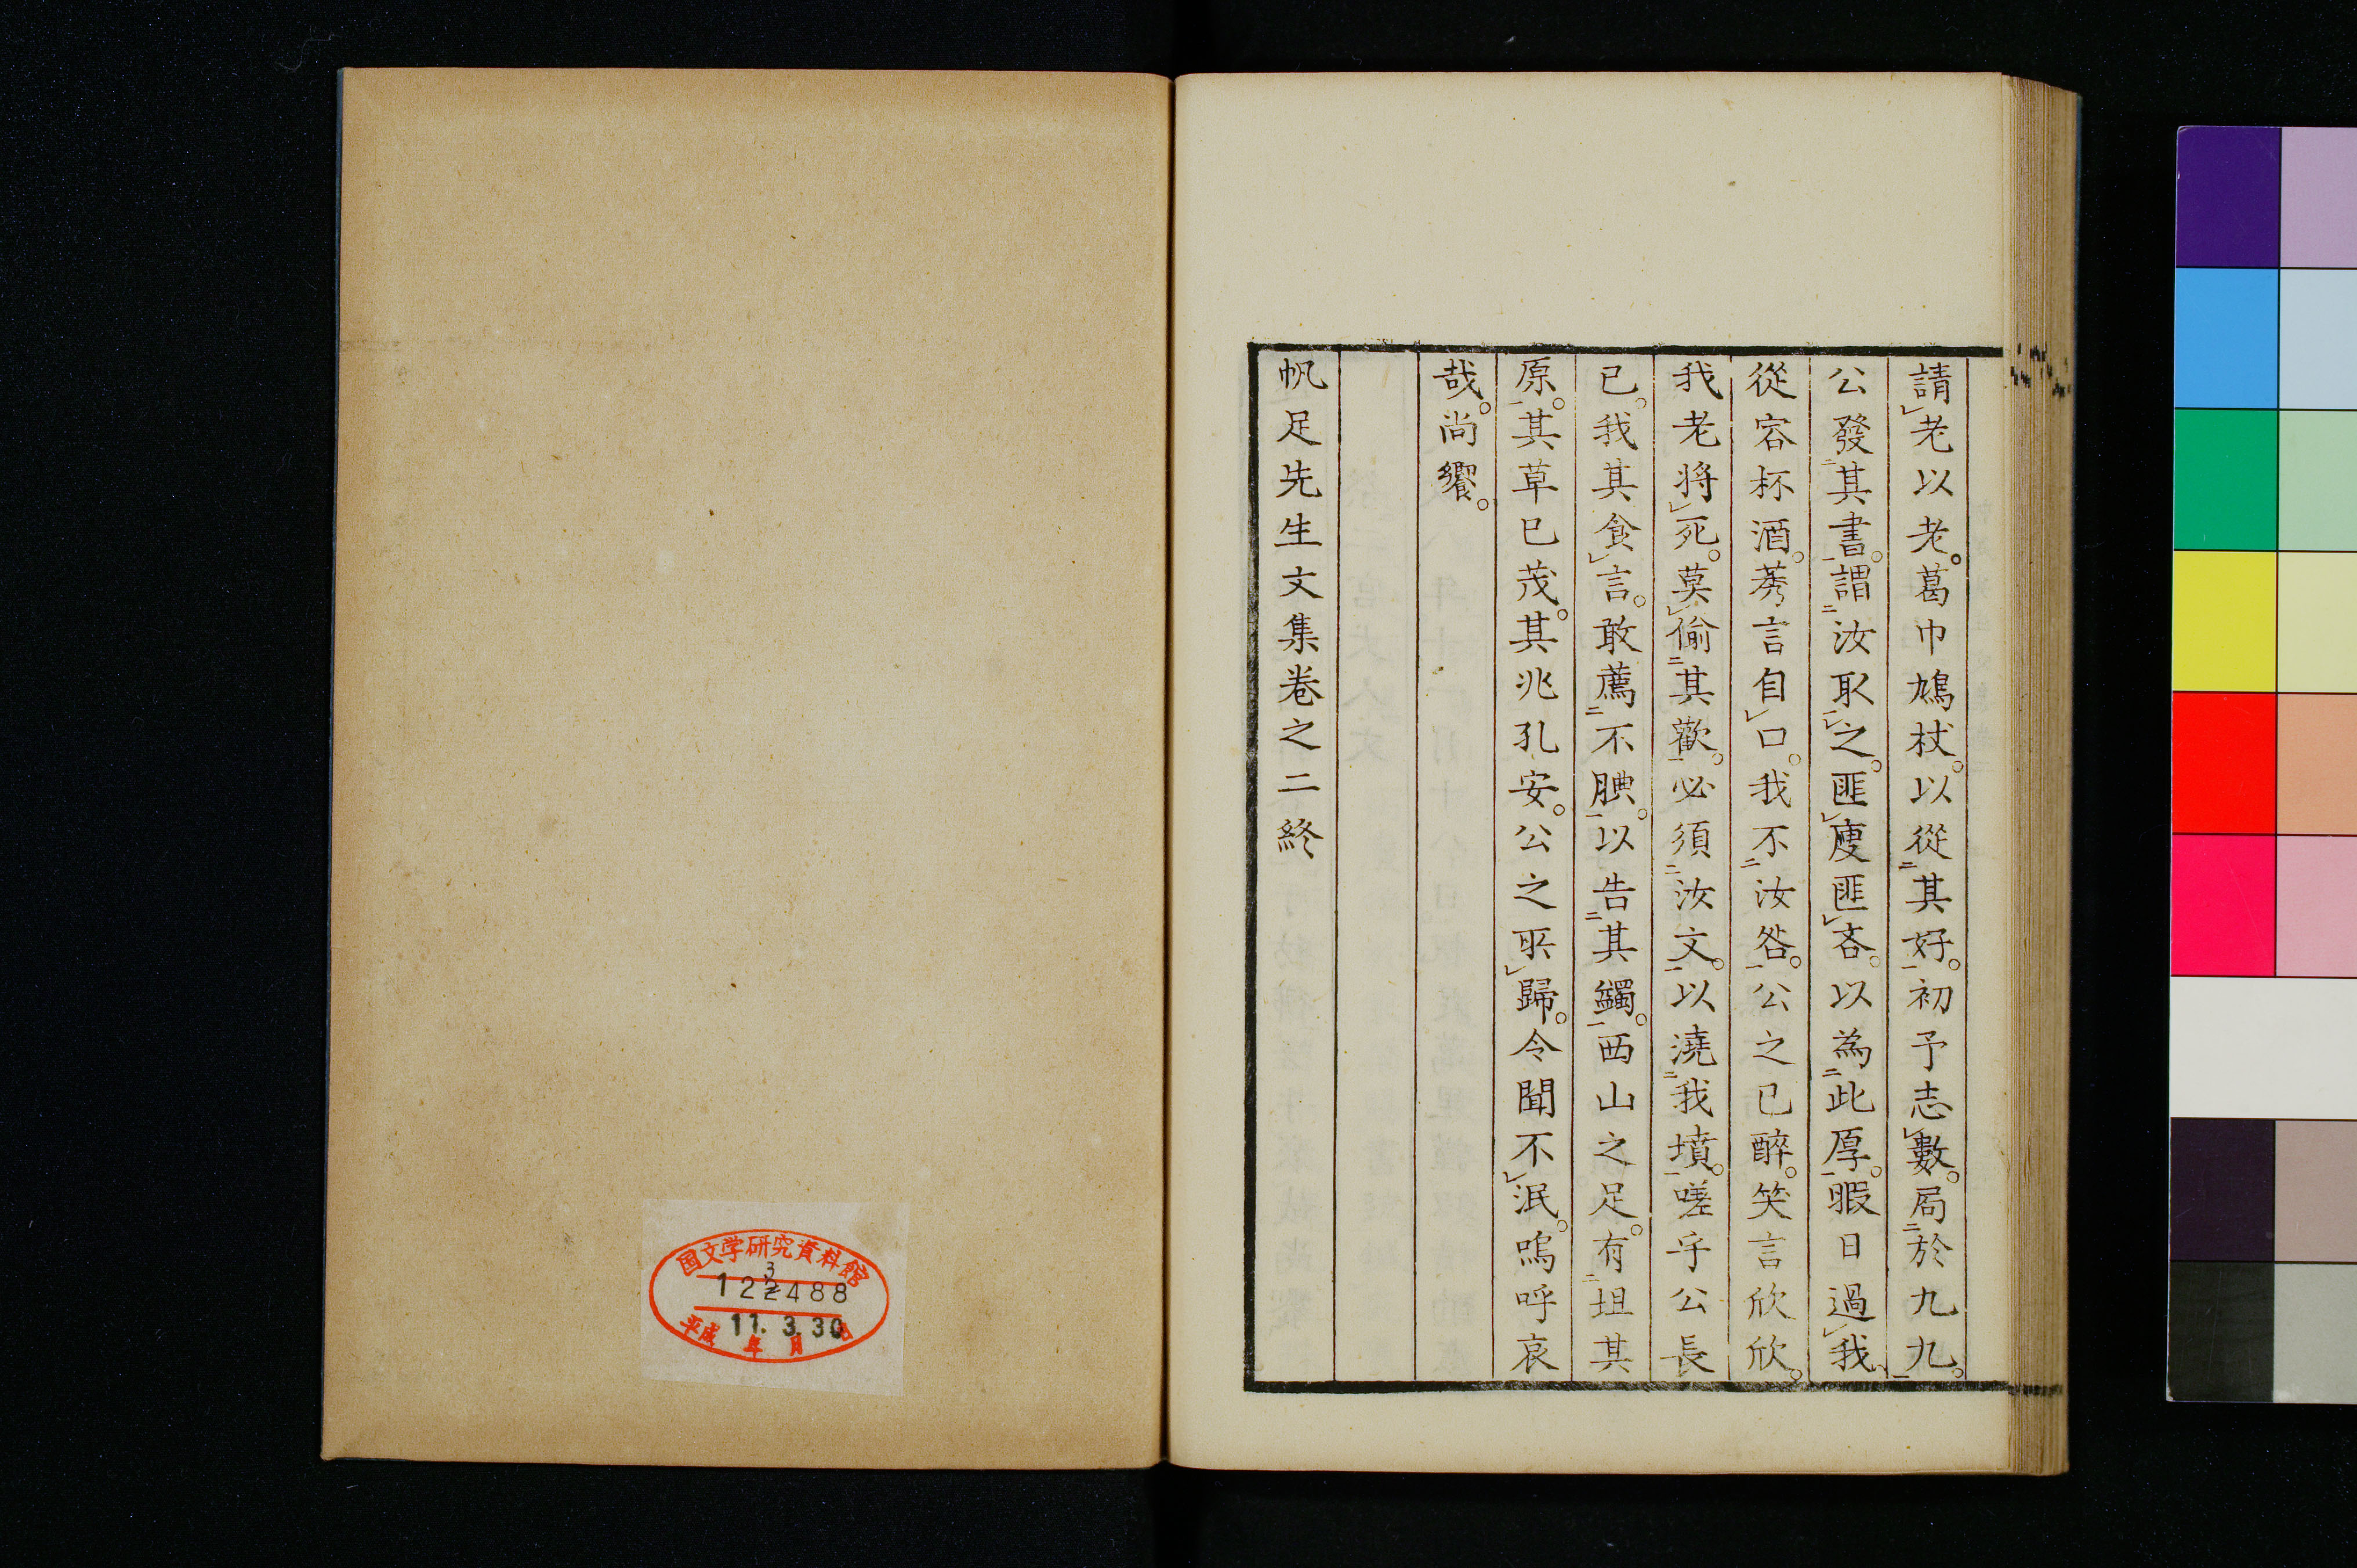 請老以老。葛巾鳩杖。以從其好。初予志數。局於九九。
公發其書。謂汝取之。匪廋匪吝。以為此厚。暇日過我、
從容杯酒。莠言自口。我不汝咎。公之已醉。笑言欣欣。
我老將死。莫偷其歡。必須汝文。以澆我墳。嗟乎公長
已。我其食言。敢薦不腆。以告其蠲。西山之足。有坦其
原。其草已茂。其兆孔安。公之所歸。令聞不泯。嗚呼哀
哉。尚饗。
帆足先生文集卷之二終
国文学研究資料館
122488
3
平成11.年3.月30日